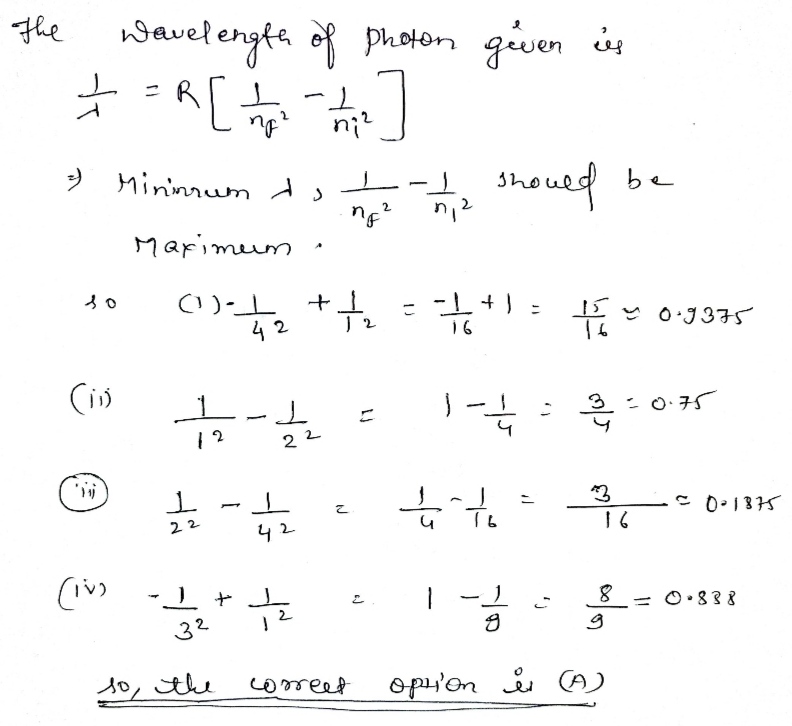 The wavelength of photon given is
1/λ = R[1/nf² - 1/ni²]
⇒ Minimum λ, 1/nf² - 1/ni² should be
Maximum.
so (i) -1/4² + 1/1² = -1/16 + 1 = 15/16 ≈ 0.9375
(ii) 1/1² - 1/2² = 1 - 1/4 = 3/4 = 0.75
(iii) 1/2² - 1/4² = 1/4 - 1/16 = 3/16 = 0.1875
(iv) -1/3² + 1/1² = 1 - 1/9 = 8/9 = 0.888
so, the correct option is (A)